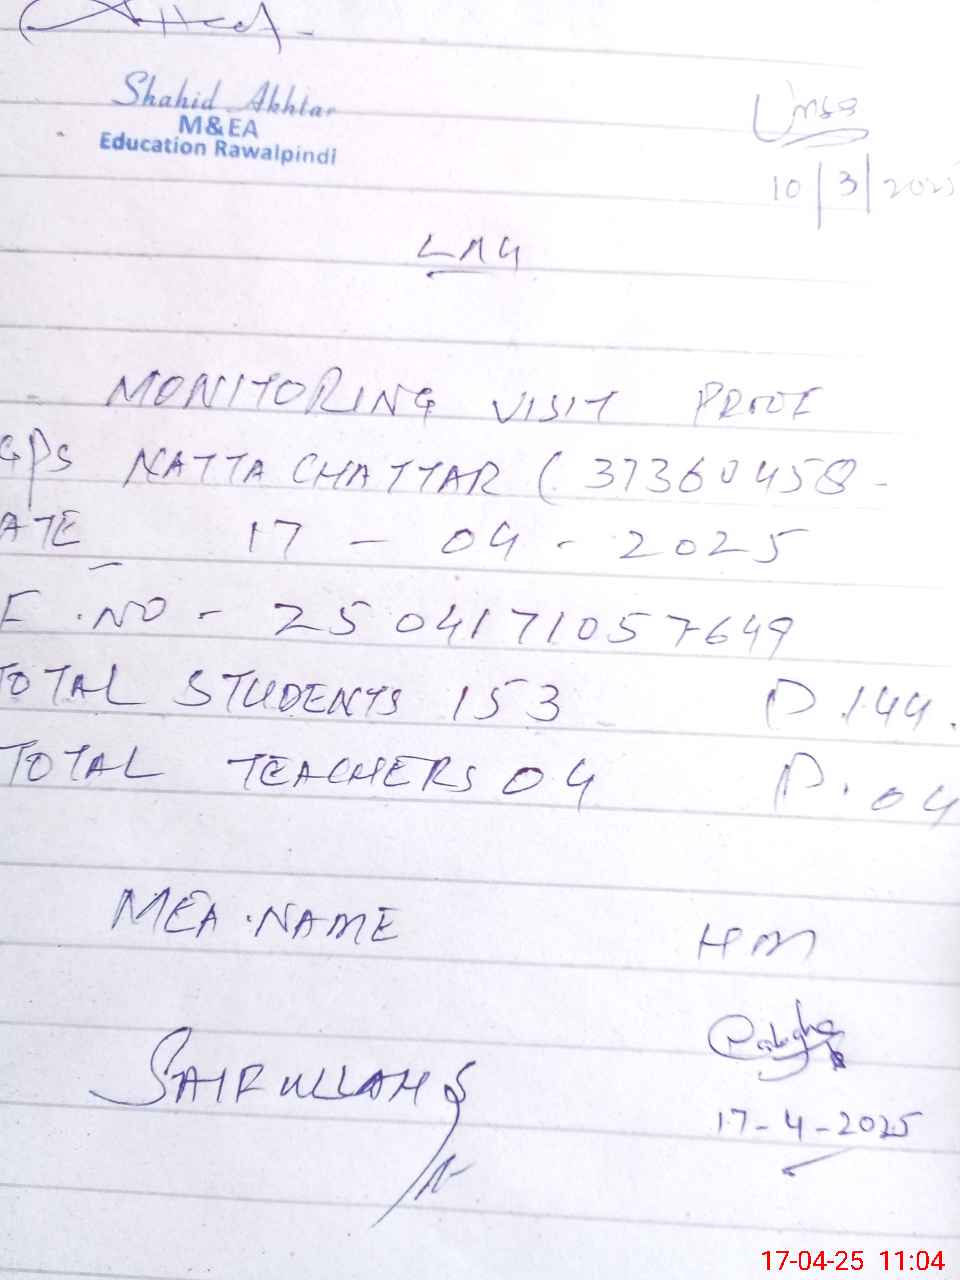 Shahid Akhtar
M&EA
Education Rawalpindi
10/3/2025
MONITORING VISIT PROOF
GPS NATTA CHATTAR (37360458-
ATE 17-04-2025
E.NO - 2504171057649
TOTAL STUDENTS 153 P.144.
TOTAL TEACHERS 04 P.04
MEA.NAME HM
SAIFULLAH
17-4-2025
17-04-25 11:04